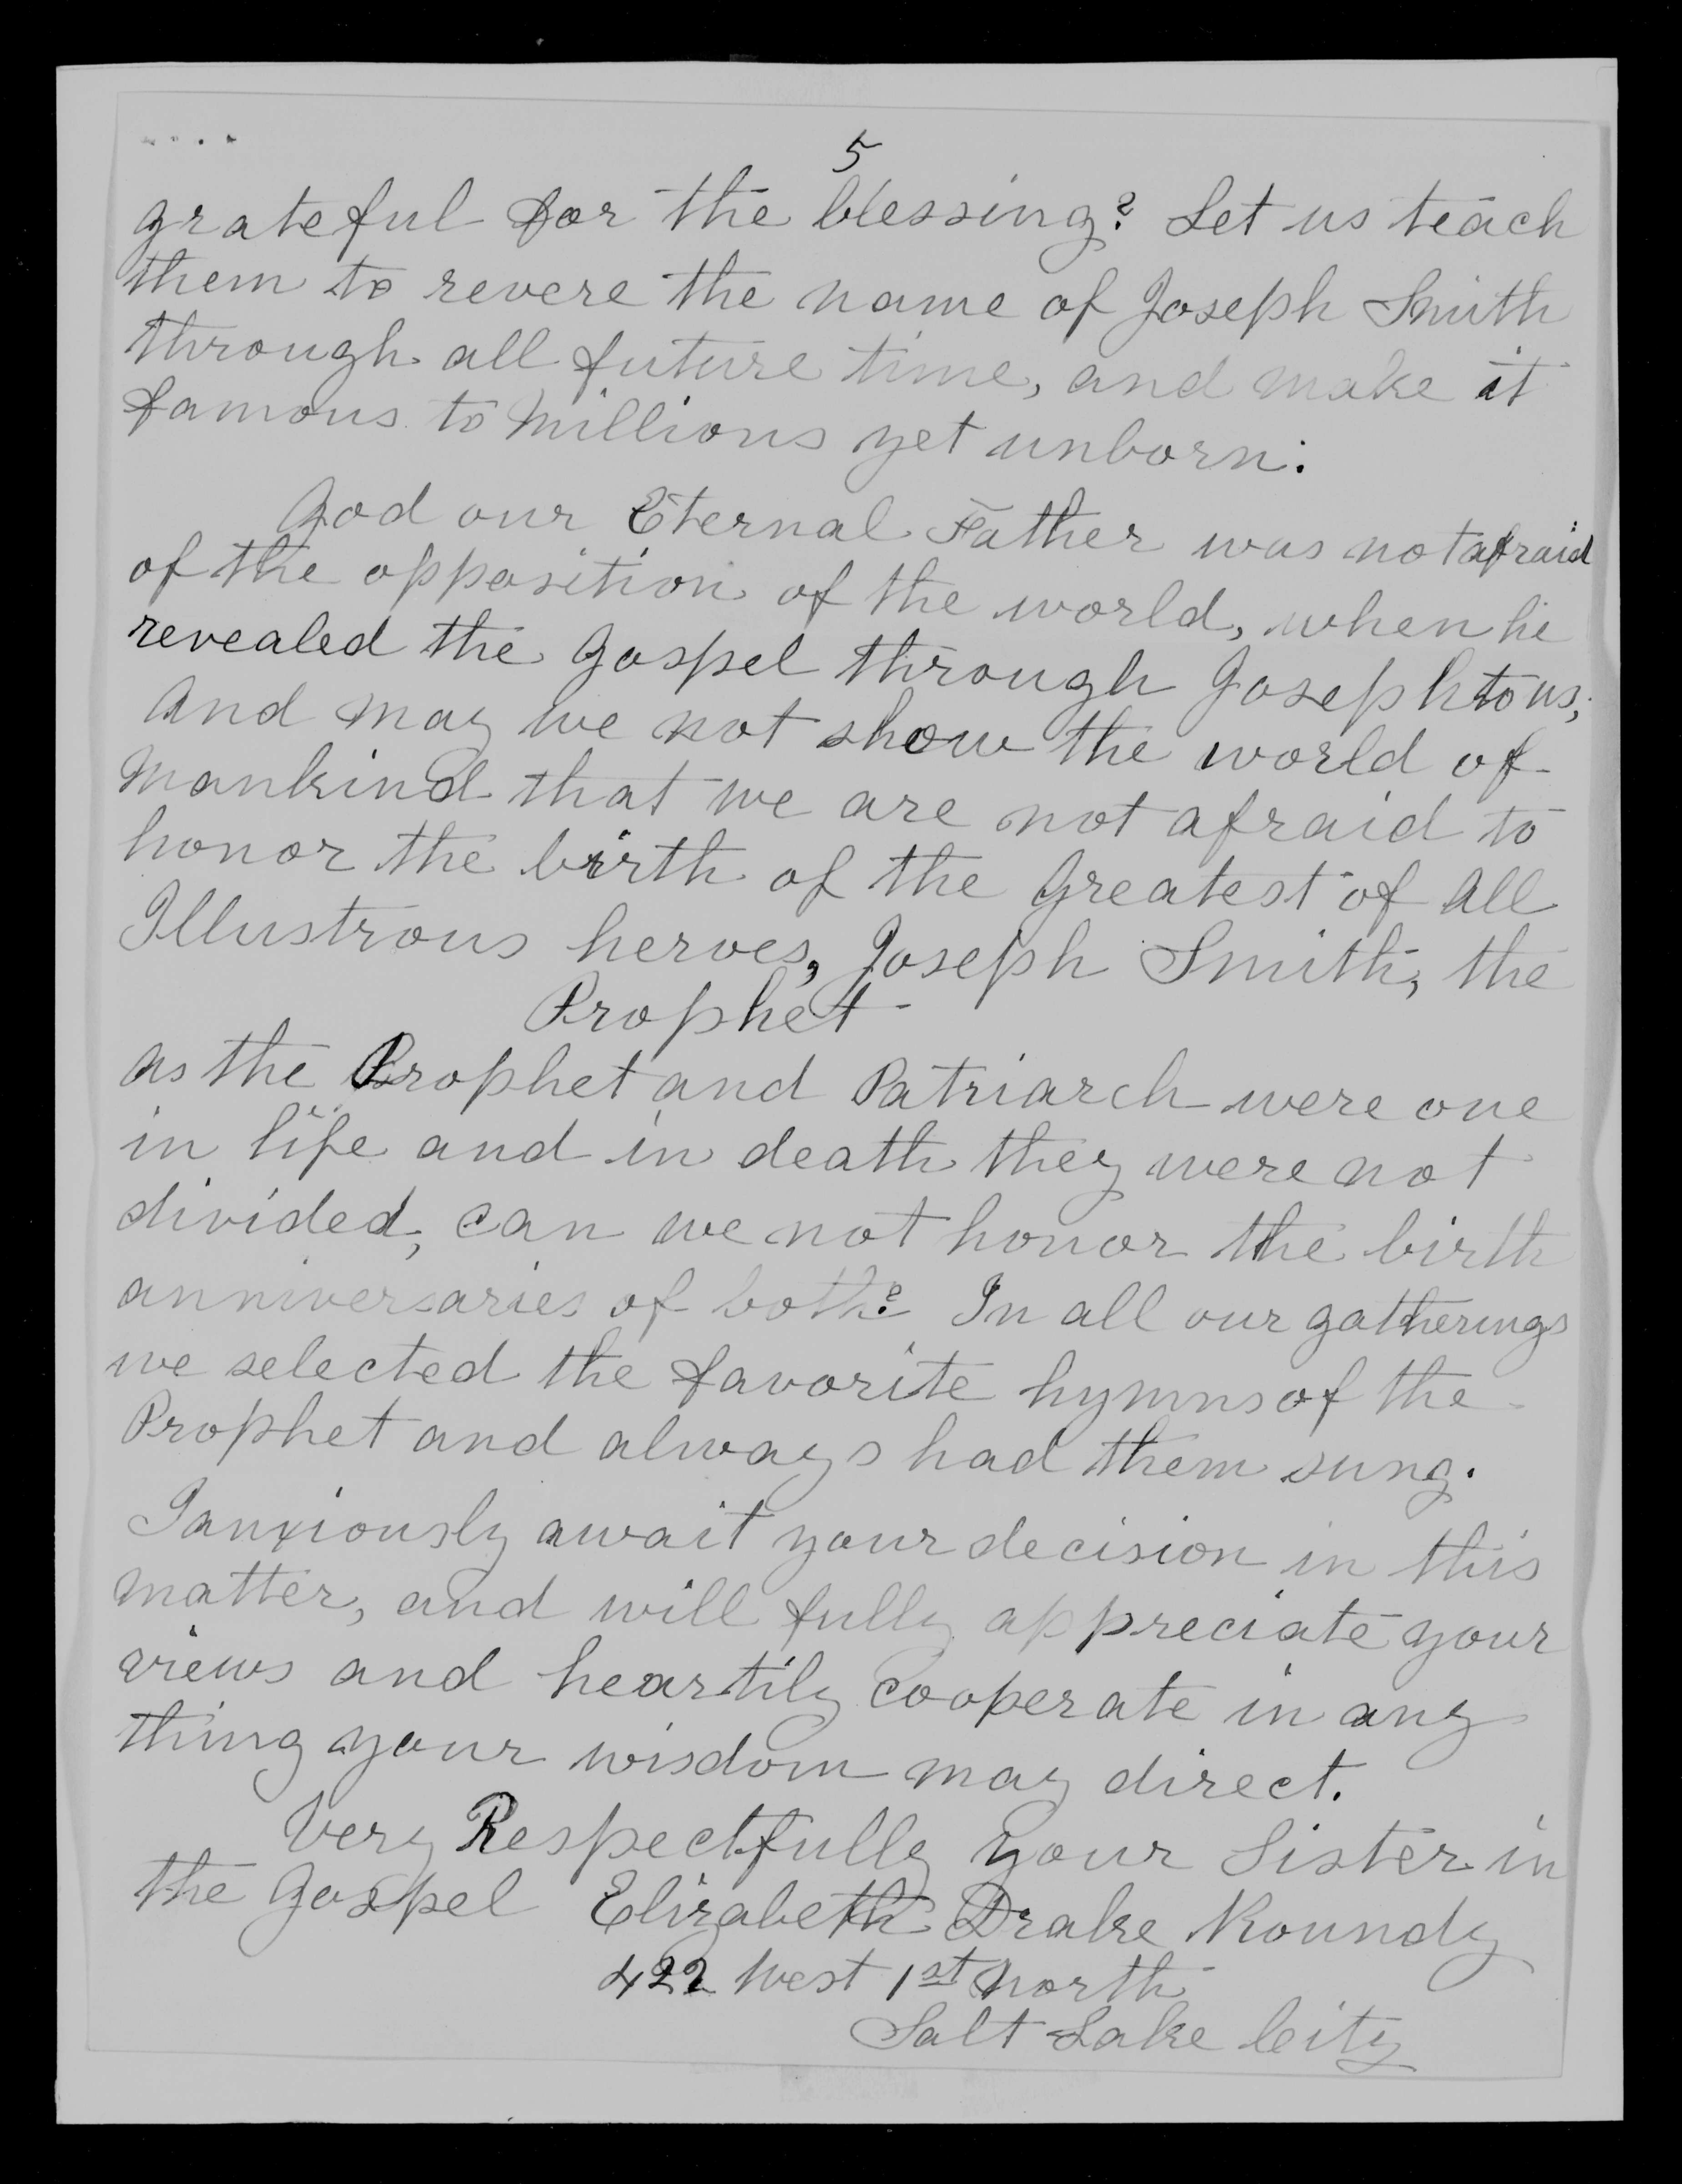 5
grateful for the blessing? Let us teach
them to revere the name of Joseph Smith
through all future time, and make it
famous to Millions yet unborn.
God our Eternal Father was not afraid
of the opposition of the world, when he
revealed the Gospel through Joseph to us;
And may we not show the world of
Mankind that we are not afraid to
honor the birth of the Greatest of All
Illustrous heroes, Joseph Smith, the
Prophet
As the Prophet and Patriarch were one
in life and in death they were not
divided, can we not honor the birth
anniversaries of both? In all our gatherings
we selected the favorite hymns of the
Prophet and always had them sung.
I anxiously await your decision in this
matter, and will fully appreciate your
views and heartily cooperate in any
thing your wisdom may direct.
Very Respectfully your Sister in
the Gospel Elizabeth Drake Roundy
422 West 1st North
Salt Lake City